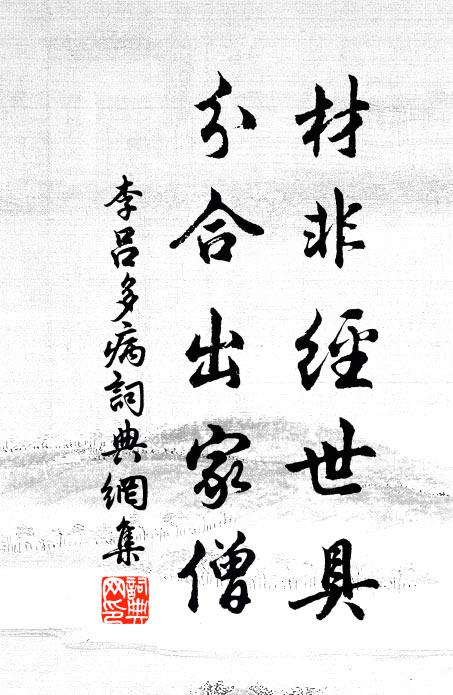 材非經世具
分合出家僧
李呂多病詞典網集
詞典網印